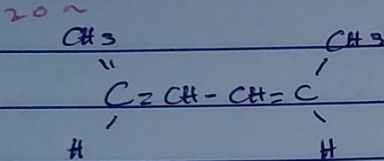 20~
CH3 CH3
C=CH-CH=C
H H